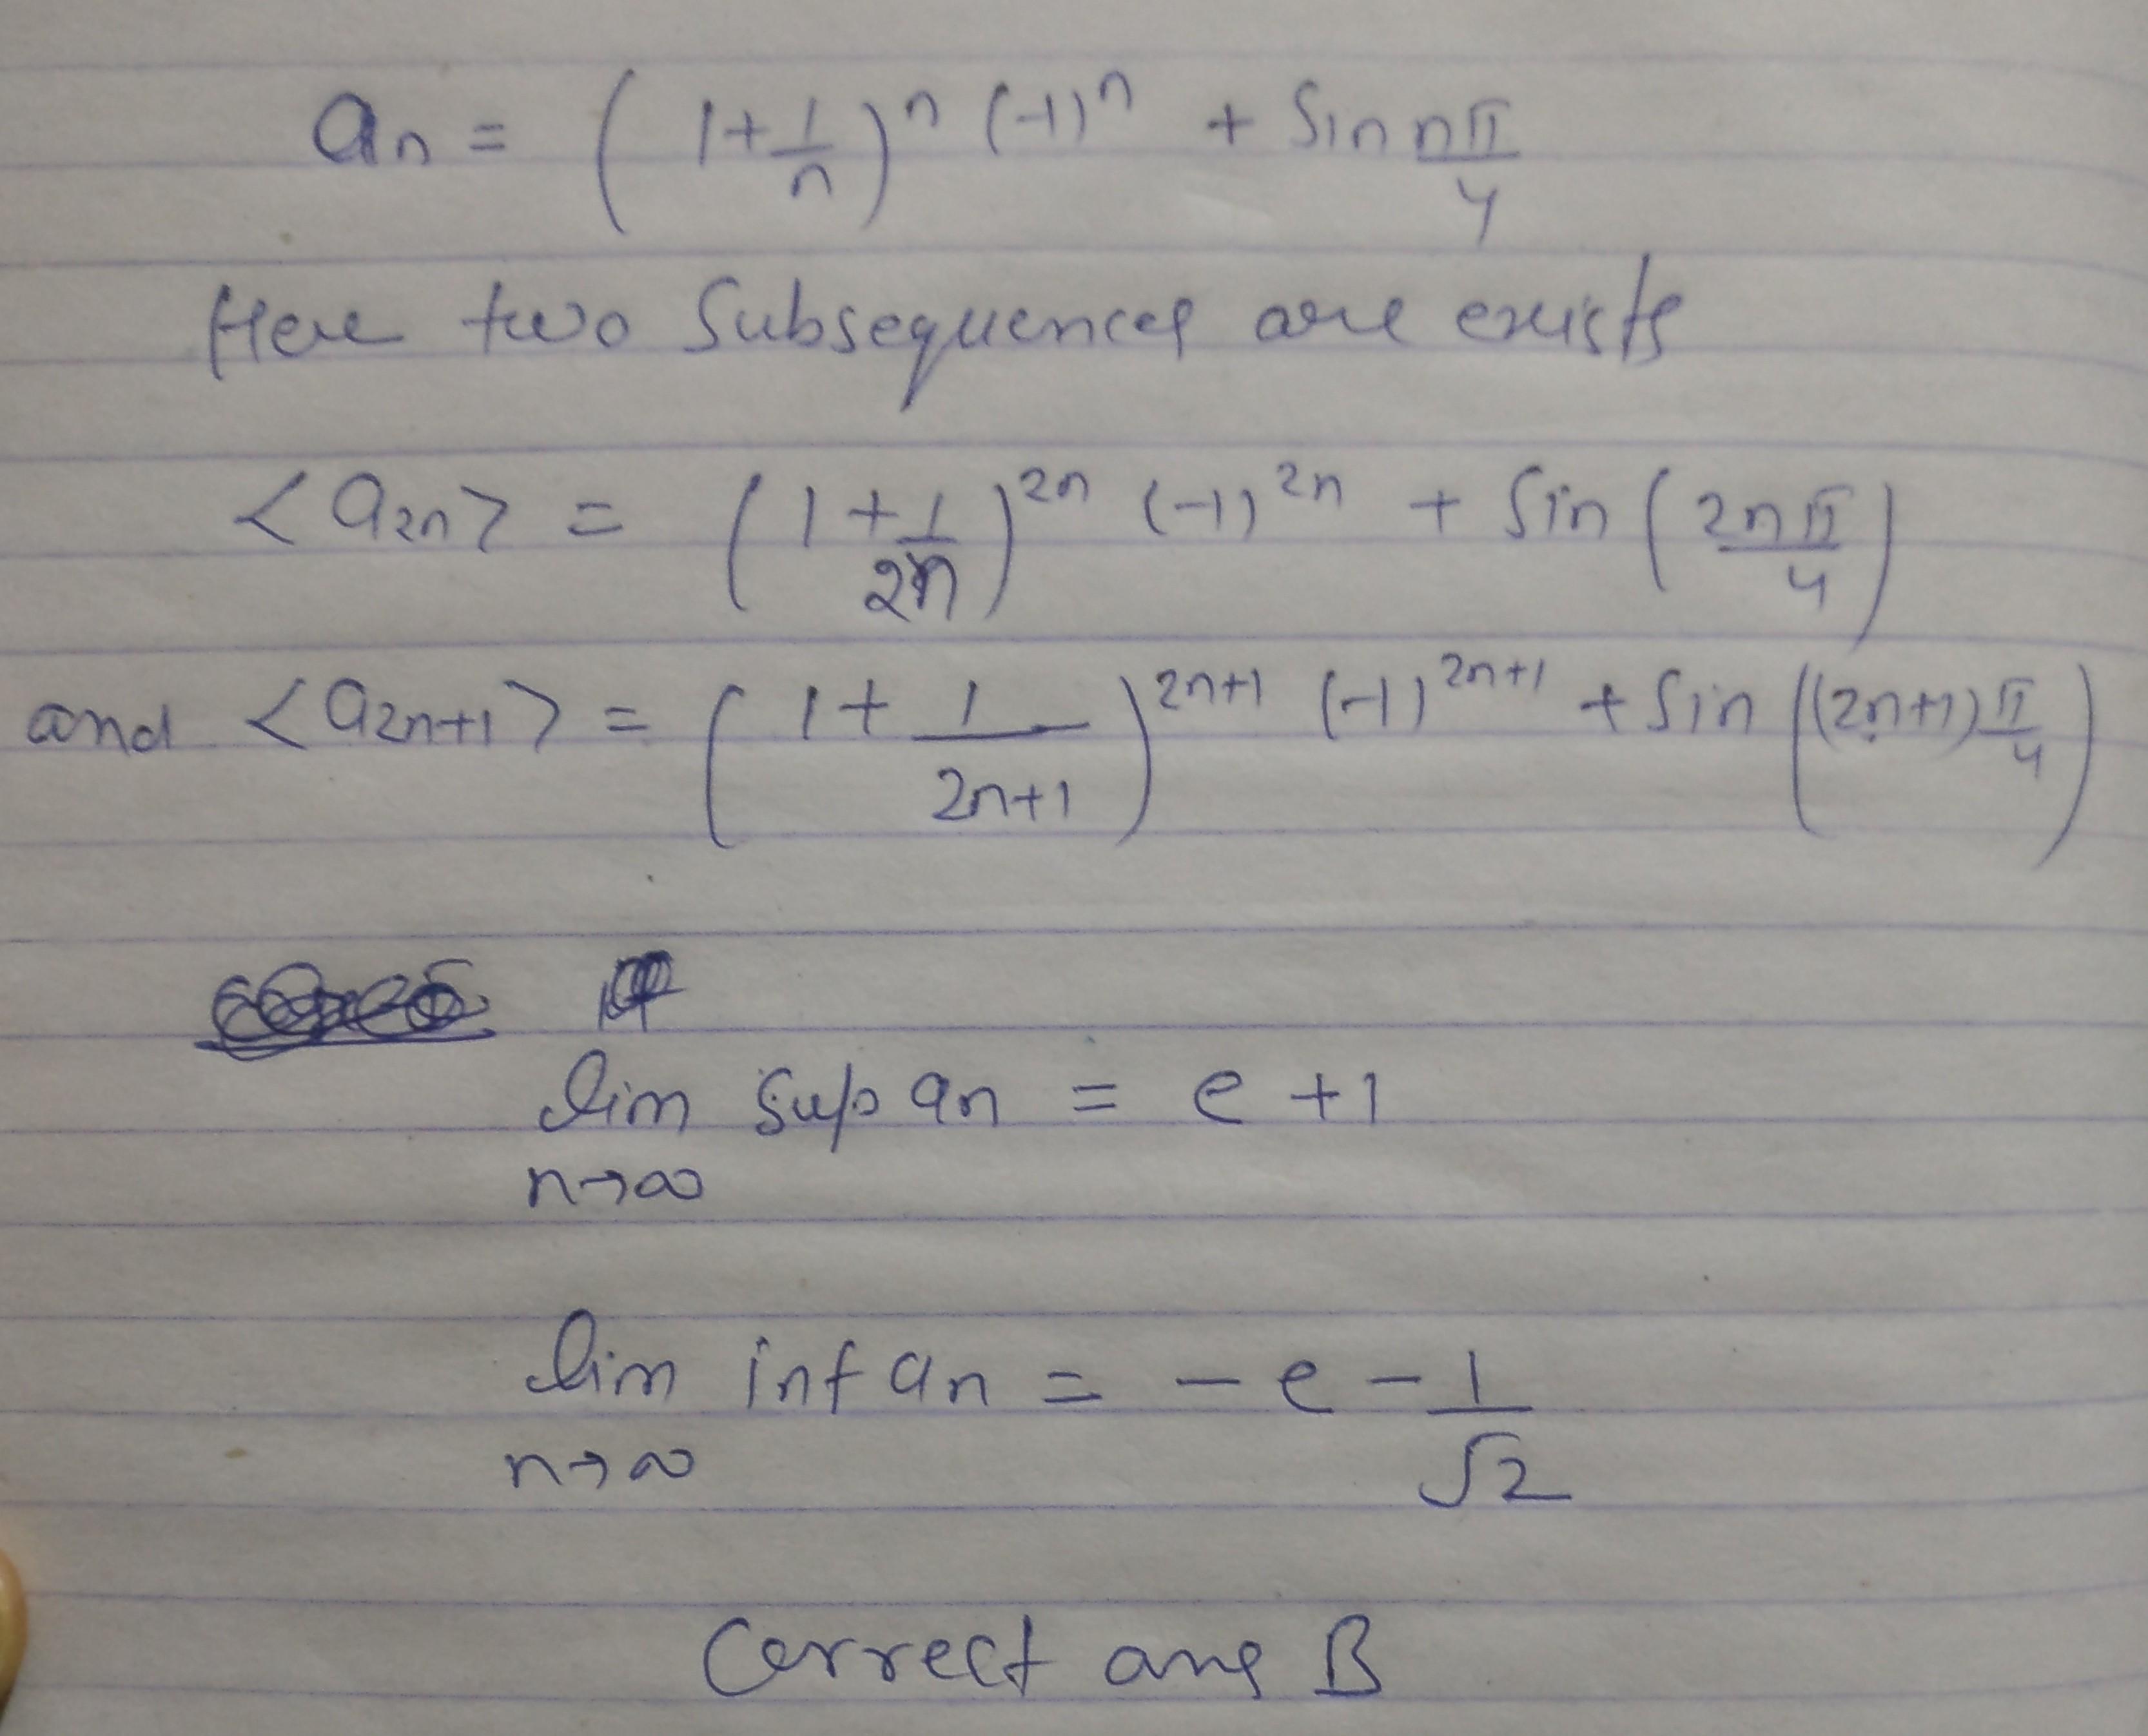 an = (1+1/n)^n (-1)^n + Sin nπ/4
Here two Subsequences are exists
<a2n> = (1+1/2n)^2n (-1)^2n + Sin (2nπ/4)
and <a2n+1> = (1+1/2n+1)^2n+1 (-1)^2n+1 + Sin ((2n+1)π/4)
lim sup an = e +1
n→∞
lim inf an = -e-1/√2
n→∞
Correct ans B